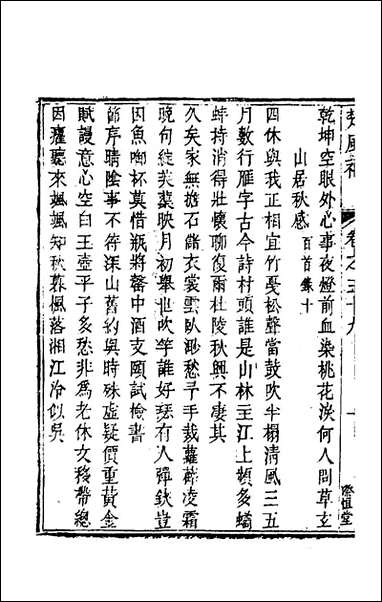 楚風補 卷之三十九
乾坤空眼外心事夜燈前血染桃花淚何人問草玄
山居秋感 百首集十
四休與我正相宜竹憂松聲當鼓吹半榻清風三五
月數行雁字古今詩村頭誰是山林主江上頗多鷸
蚌持消得壯懷聊復爾杜陵秋興不淒其
久矣家無擔石儲衣裳雲臥渺愁予手裁蘿薜凌霜
晚句綻芙蕖映月初舉世吹竽誰好瑟有人彈鋏豈
因魚啣杯莫惜瓶將罄中酒支頤試檢書
節序晴陰事不待深山舊約與時殊虛疑價重黃金
賦謾意心空白玉壺平子多愁非為老休文移帶總
因癯聽來颯颯知秋暮楓落湘江冷似吳